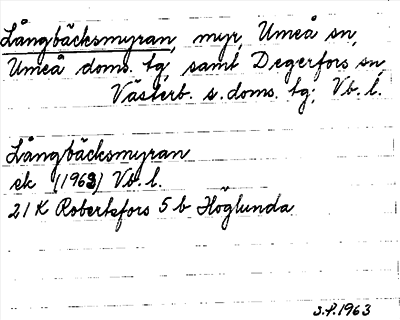 Långbäcksmyran, myr, Umeå sn,
Umeå doms. tg, samt Degerfors sn,
Västerb. s. doms. tg; Vb. l.
Långbäcksmyran
ek (1963) Vb. l.
21 K Robertsfors 5 b Höglunda
S.P. 1963